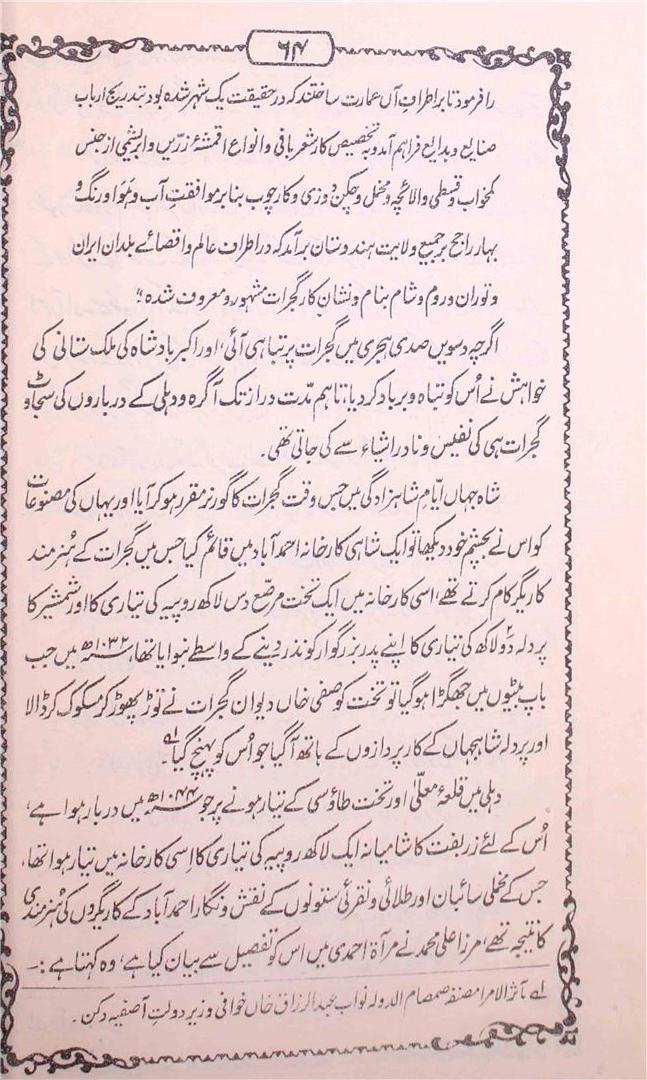 ۶۴
را فرمود تا بر اطراف آں عمارت ساختند کہ در حقیقت یک شہر شدہ بود بتدریج ارباب
صنایع و بدایع فراہم آمد و بہ تخصیص کار شعر بافی و انواع اقمشۂ زرّیں و ابریشمی از جنس
کمخواب و قسطی والائچہ و مخمل و چکن دوزی و کارچوب بنا بر موافقت آب و ہوا و رنگ و
بہار راجح بر جمیع ولایت ہندوستان بر آمد کہ در اطراف عالم و اقصائے بلدان ایران
و توران و روم و شام بنام و نشان کار گجرات مشہور و معروف شدہ"
اگرچہ دسویں صدی ہجری میں گجرات پر تباہی آئی، اور اکبر بادشاہ کی ملک ستانی کی
خواہش نے اُس کو تباہ و برباد کر دیا، تاہم مدّت دراز تک آگرہ و دہلی کے درباروں کی سجاوٹ
گجرات ہی کی نفیس و نادر اشیاء سے کی جاتی تھی۔
شاہ جہاں ایّامِ شاہزادگی میں جس وقت گجرات کا گورنر مقرر ہو کر آیا اور یہاں کی مصنوعات
کو اس نے بچشم خود دیکھا تو ایک شاہی کارخانہ احمد آباد میں قائم کیا جس میں گجرات کے ہُنر مند
کاریگر کام کرتے تھے، اسی کارخانہ میں ایک تخت مرصّع دس لاکھ روپیہ کی تیاری کا اور شمشیر کا
پردلہ دّو لاکھ کی تیاری کا اپنے پدر بزرگوار کو نذر دینے کے واسطے بنوایا تھا، ۱۰۳۲ھ میں جب
باپ بیٹوں میں جھگڑا ہو گیا تو تخت کو صفی خاں دیوان گجرات نے توڑ پھوڑ کر مسکوک کر ڈالا
اور پردلہ شاہجہاں کے کارپردازوں کے ہاتھ آ گیا جو اُس کو پہنچ گیا ۱ے۔
دہلی میں قلعۂ معلّیٰ اور تخت طاؤسی کے تیار ہونے پر جو ۱۰۴۴ھ میں دربار ہوا ہے،
اُس کے لئے زربفت کا شامیانہ ایک لاکھ روپیہ کی تیاری کا اِسی کارخانہ میں تیار ہوا تھا،
جس کے مخملی سائبان اور طلائی و نقرئی ستونوں کے نقش و نگار احمد آباد کے کاریگروں کی ہُنر مندی
کا نتیجہ تھے، مرزا علی محمد نے مرآۃ احمدی میں اس کو تفصیل سے بیان کیا ہے، وہ کہتا ہے :۔
۱ے مآثر الامرا مصنفہ صمصام الدولہ نواب عبد الرزاق خاں خوافی وزیر دولتِ آصفیہ دکن۔